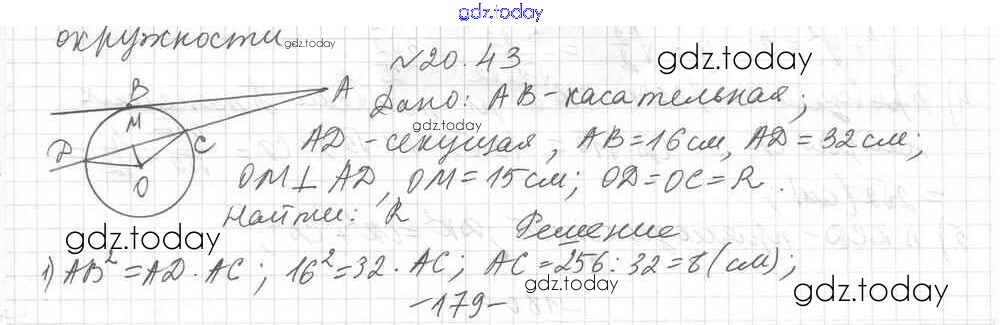 gdz.today
окружности gdz.today
№20.43 gdz.today
B A
M Дано: AB-касательная;
gdz.today
D C AD-секущая, AB=16см, AD=32см;
O OM⊥AD, OM=15см; OD=OC=R.
Найти: R
gdz.today Решение
1) AB²=AD·AC; 16²=32·AC; AC=256:32=8(см);
gdz.today gdz.today
-179-